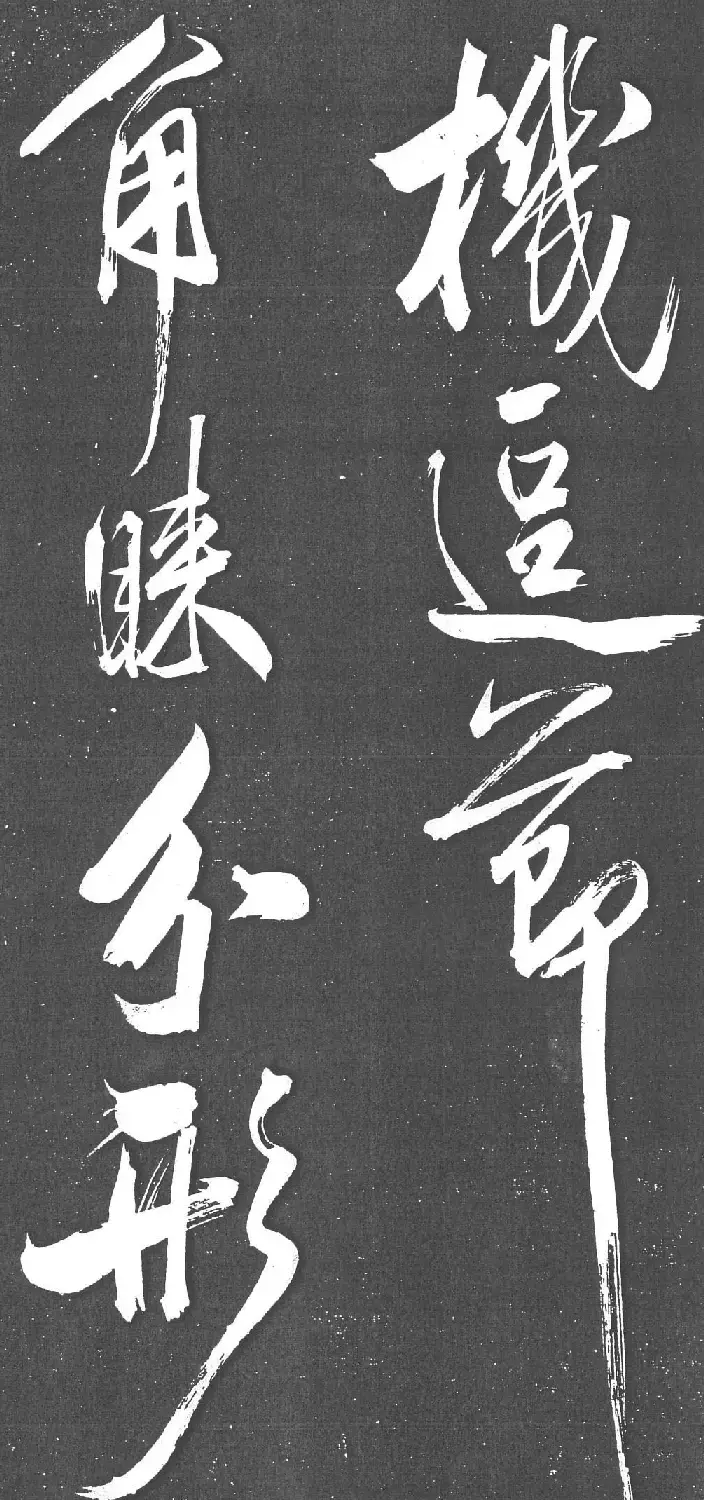 機逗節
角睞分形